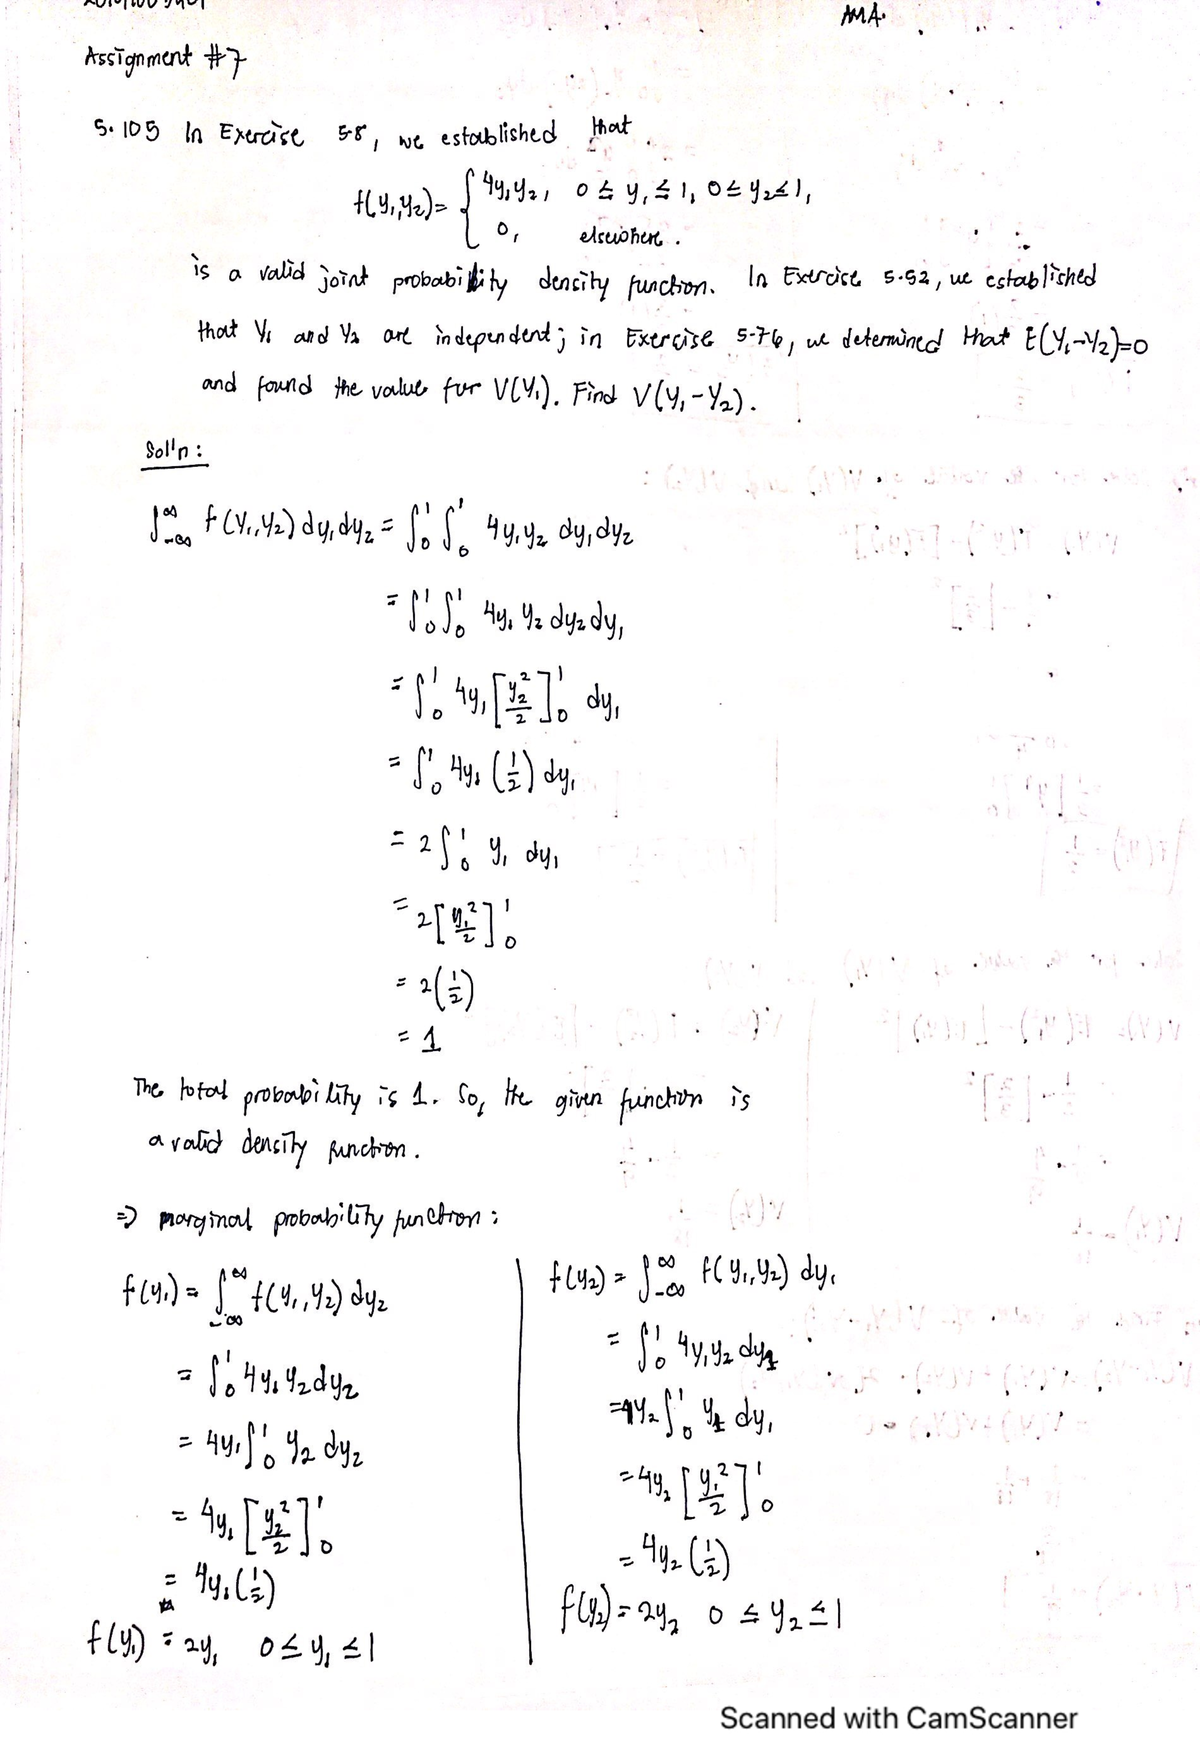 AMA.
Assignment #7
5.105 In Exercise 5.8, we established that
f(y₁,y₂)= { 4y₁y₂, 0 ≤ y₁ ≤ 1, 0 ≤ y₂ ≤ 1,
0, elsewhere.
is a valid joint probability density function. In Exercise 5.52, we established
that Y₁ and Y₂ are independent; in Exercise 5.76, we determined that E(Y₁-Y₂)=0
and found the value for V(Y₁). Find V(Y₁-Y₂).
Sol'n:
∫_{-∞}^{∞} f(Y₁,Y₂) dy₁dy₂ = ∫₀¹ ∫₀¹ 4y₁y₂ dy₁dy₂
= ∫₀¹ ∫₀¹ 4y₁ y₂ dy₂dy₁
= ∫₀¹ 4y₁ [y₂²/2]₀¹ dy₁
= ∫₀¹ 4y₁ (1/2) dy₁
= 2 ∫₀¹ y₁ dy₁
= 2[y₁²/2]₀¹
= 2(1/2)
= 1
The total probability is 1. So, the given function is
a valid density function.
⇒ marginal probability function:
f(y₁) = ∫_{-∞}^{∞} f(y₁,y₂) dy₂
= ∫₀¹ 4y₁ y₂ dy₂
= 4y₁ ∫₀¹ y₂ dy₂
= 4y₁ [y₂²/2]₀¹
= 4y₁(1/2)
f(y₁) = 2y₁ 0 ≤ y₁ ≤ 1
f(y₂) = ∫_{-∞}^{∞} f(y₁,y₂) dy₁
= ∫₀¹ 4y₁y₂ dy₁
= 4y₂ ∫₀¹ y₁ dy₁
= 4y₂ [y₁²/2]₀¹
= 4y₂ (1/2)
f(y₂) = 2y₂ 0 ≤ y₂ ≤ 1
Scanned with CamScanner